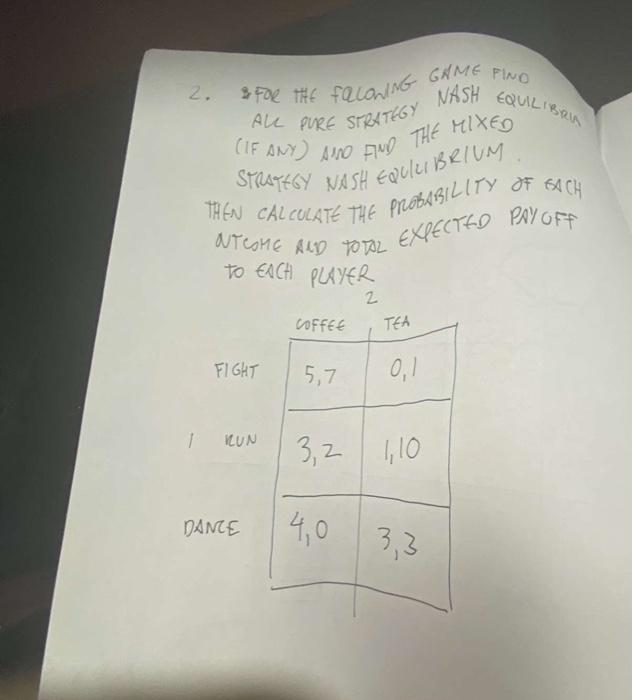 2. FOR THE FOLLOWING GAME FIND
ALL PURE STRATEGY NASH EQUILIBRIA
(IF ANY) AND FIND THE MIXED
STRATEGY NASH EQUILIBRIUM.
THEN CALCULATE THE PROBABILITY OF EACH
OUTCOME AND TOTAL EXPECTED PAYOFF
TO EACH PLAYER
2
COFFEE TEA
FIGHT 5,7 0,1
1 RUN 3,2 1,10
DANCE 4,0 3,3